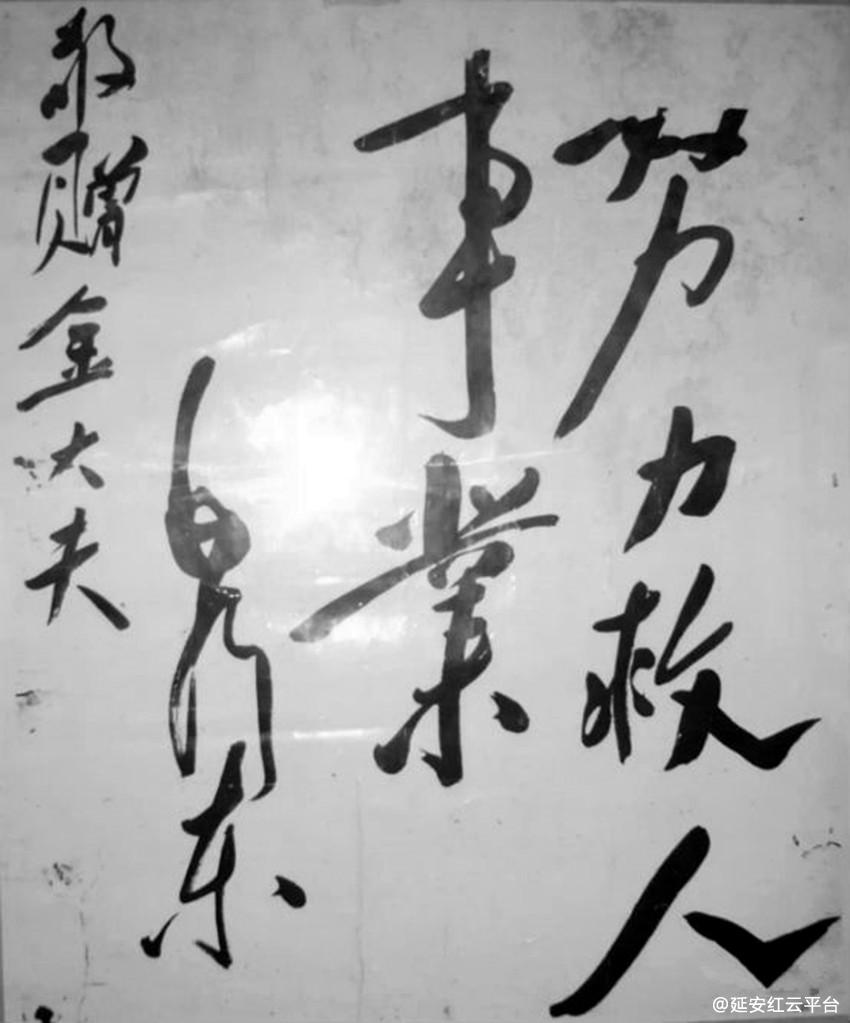 努力救人
事業
敬贈金大夫
@延安红云平台